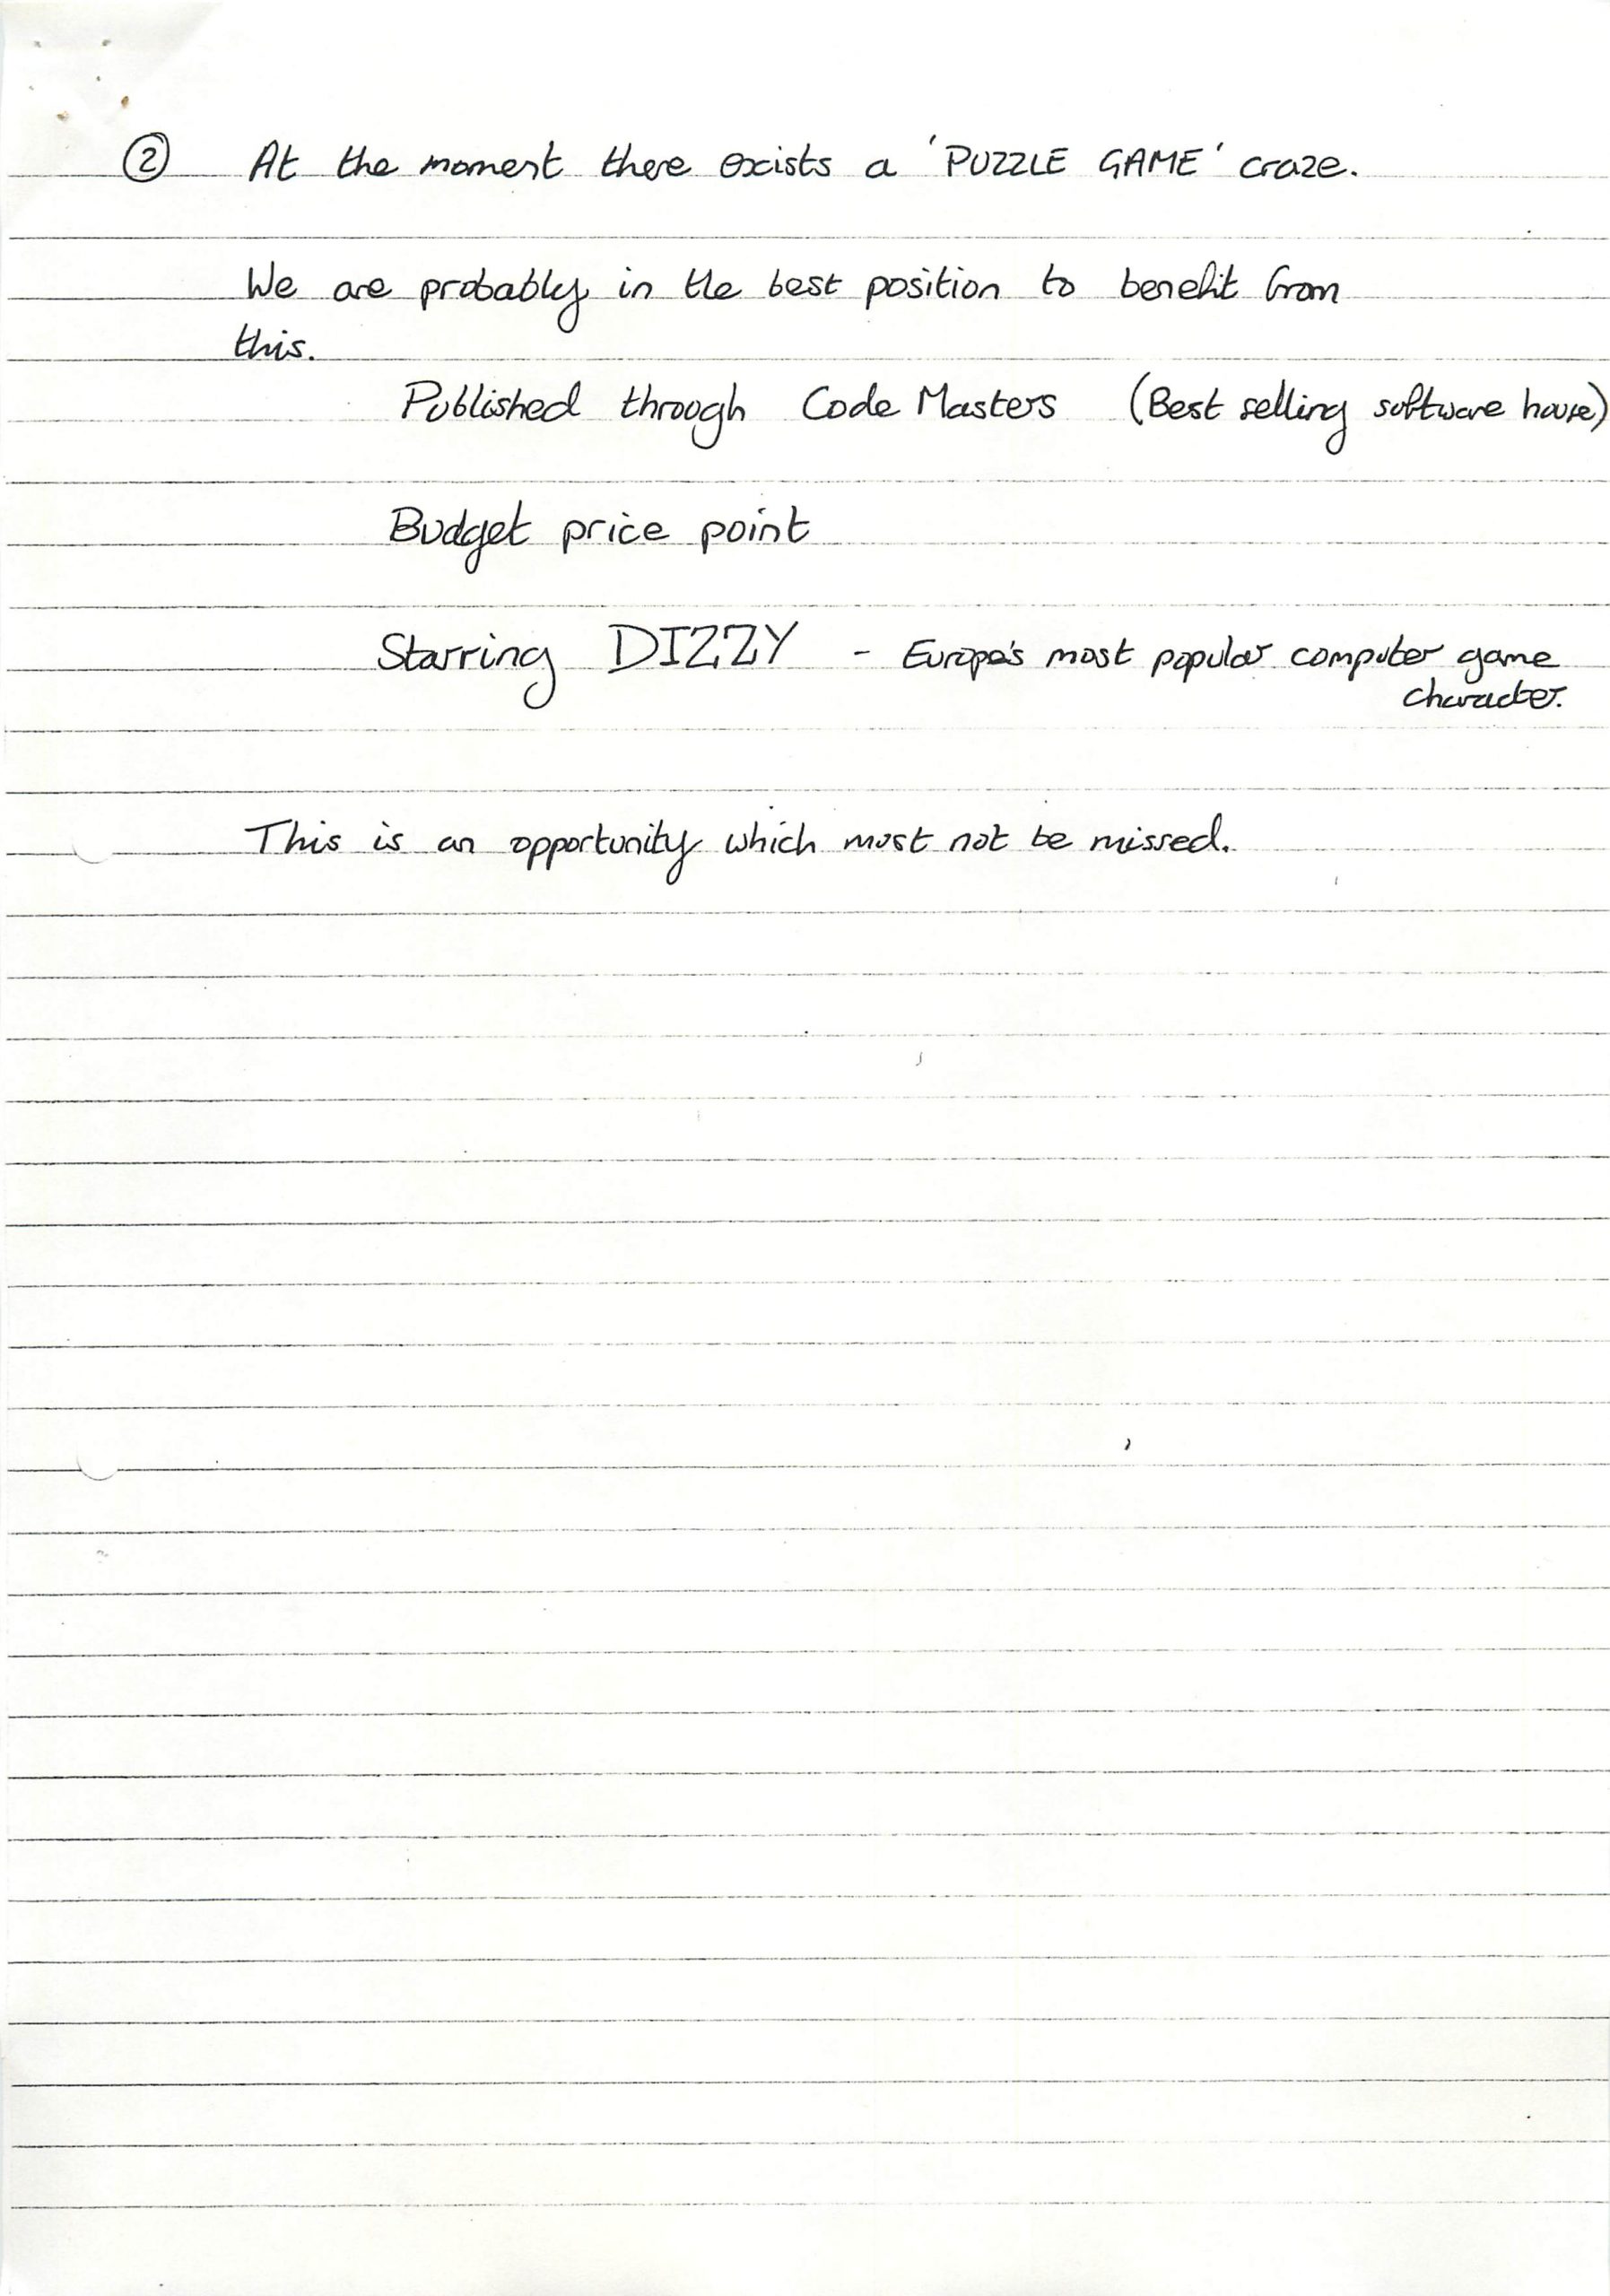 ② At the moment there exists a 'PUZZLE GAME' craze.
We are probably in the best position to benefit from
this.
Published through Code Masters (Best selling software house)
Budget price point
Starring DIZZY - Europe's most popular computer game
character.
This is an opportunity which must not be missed.